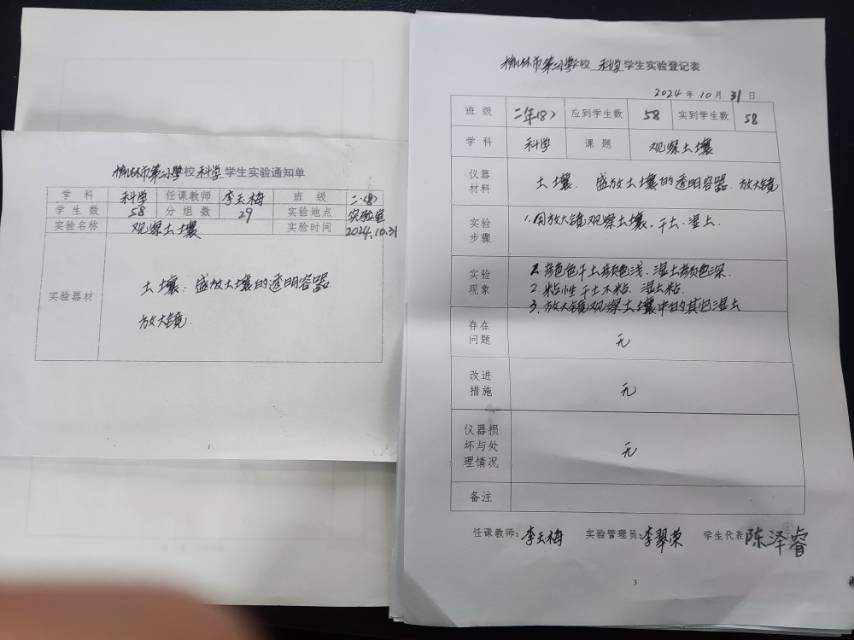 榆林市第二小学校 科学 学生实验通知单
学 科 科学 任课教师 李玉梅 班 级 二(8)
学 生 数 58 分 组 数 29 实验地点 实验室
实验名称 观察土壤 实验时间 2024.10.31
实验器材 土壤. 盛放土壤的透明容器
放大镜.
1
榆林市第二小学校 科学 学生实验登记表
2024 年 10 月 31 日
班 级 二年(8) 应到学生数 58 实到学生数 58
学 科 科学 课 题 观察土壤
仪器材料 土壤. 盛放土壤的透明容器. 放大镜
实验步骤 1.用放大镜观察土壤.干土.湿土.
实验现象 1.颜色干土颜色浅.湿土颜色深.
2.粘性干土不粘.湿土粘.
3.放大镜观察土壤中的其它湿土
存在问题 无
改进措施 无
仪器损坏与处理情况 无
备注
任课教师: 李玉梅 实验管理员: 李翠荣 学生代表 陈泽睿
3